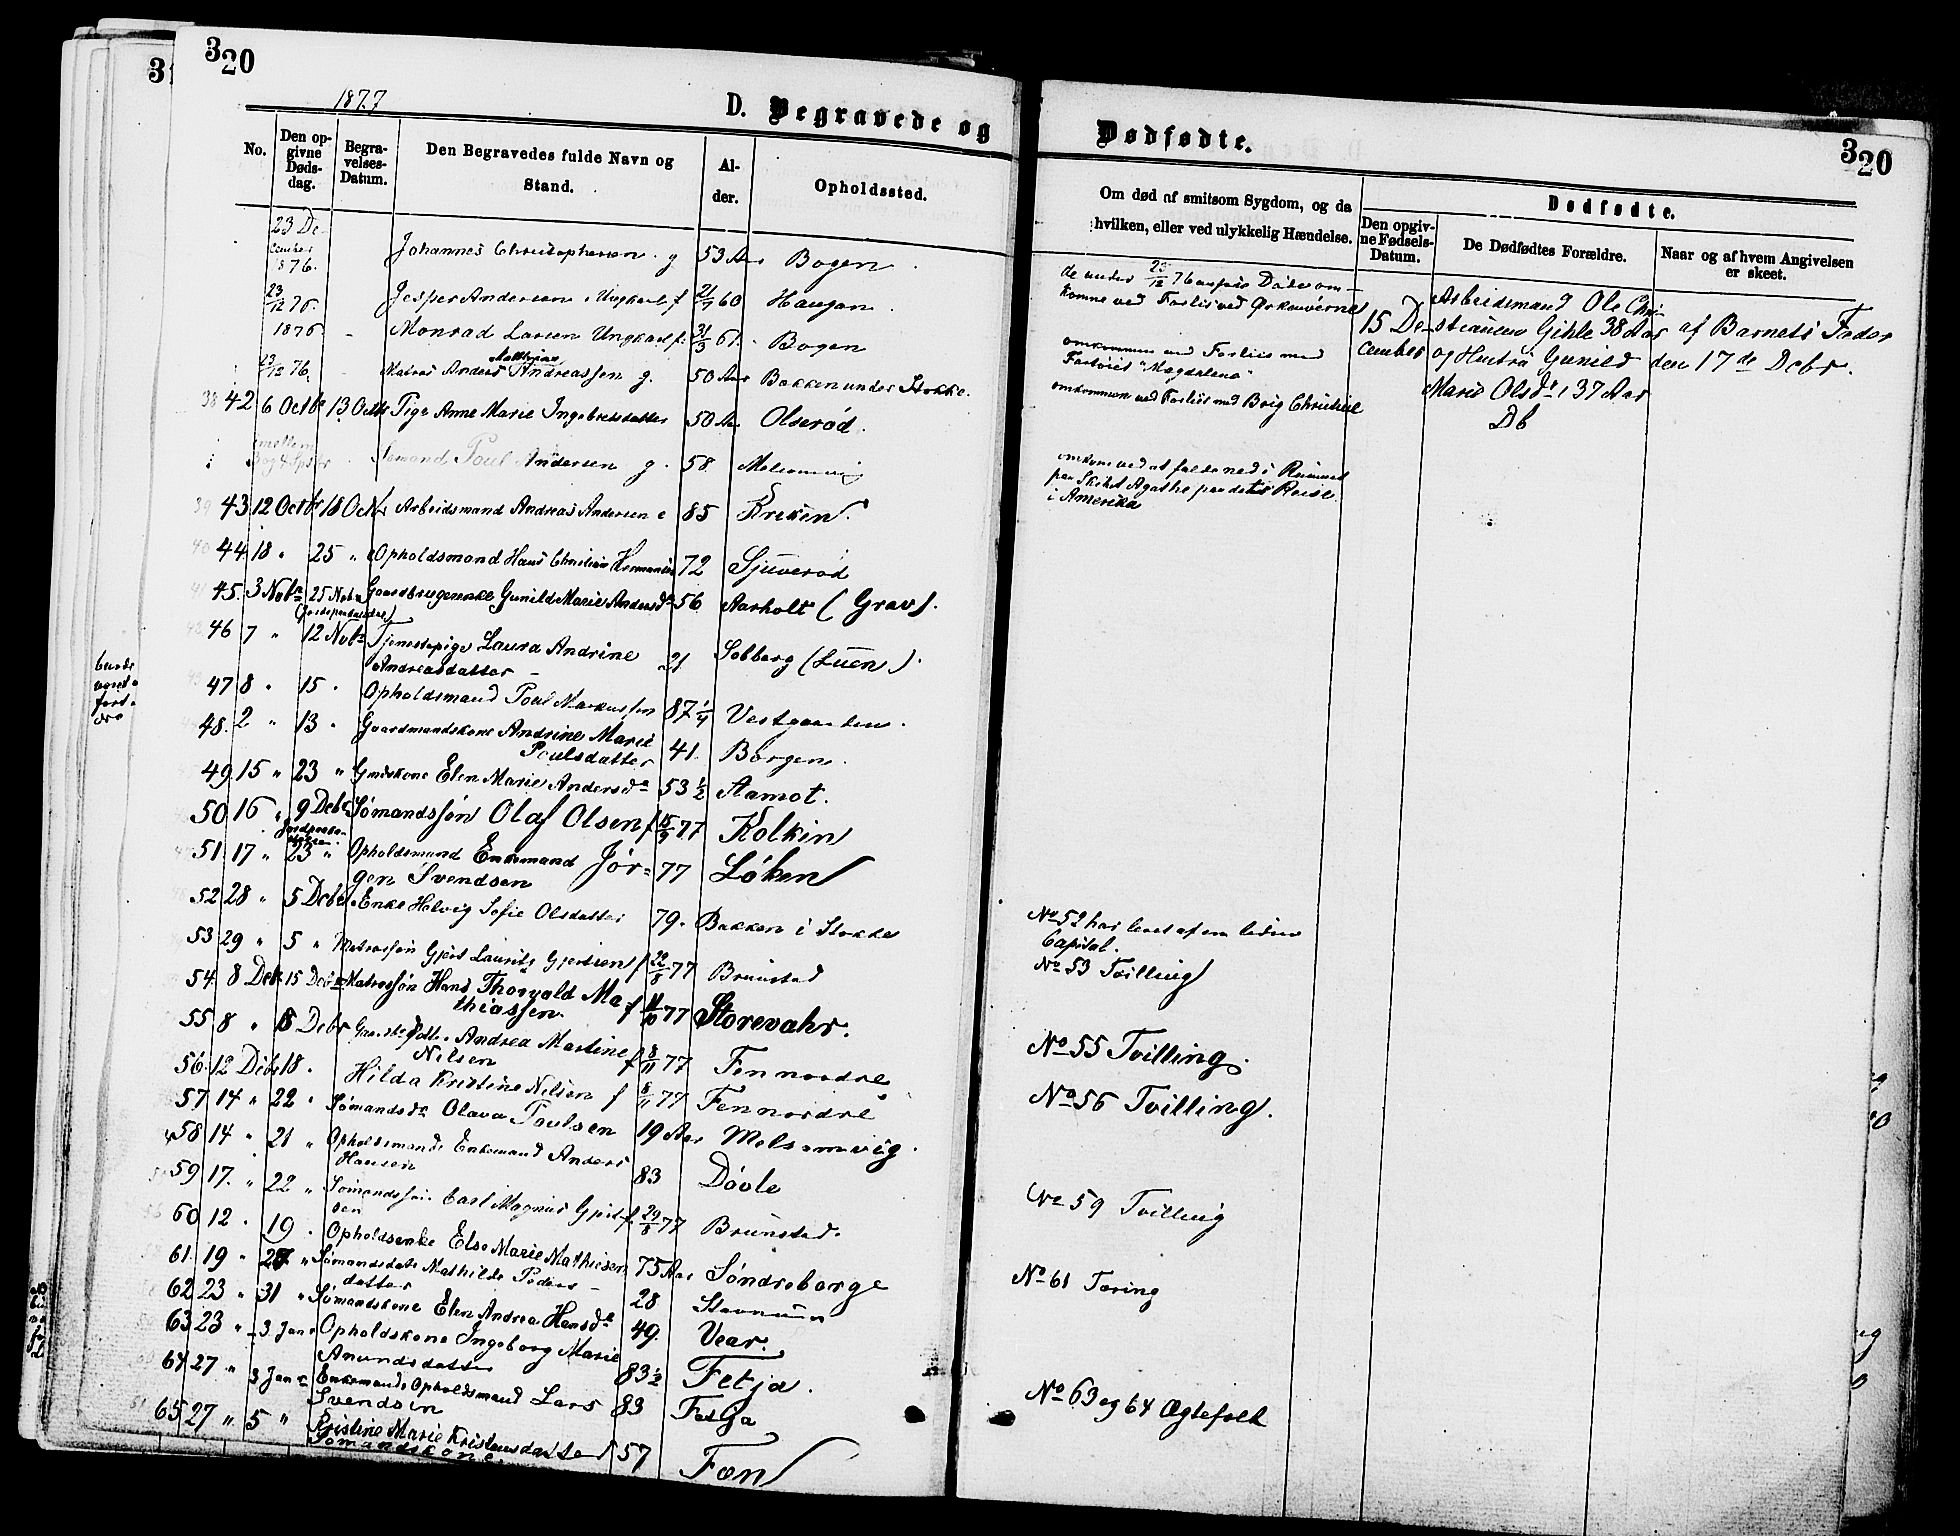 320
1877
D. Begravede og
No.
Den op-
givne
Døds-
dag.
Begra-
velses-
Datum.
Den Begravedes fulde Navn og
Stand.
Al-
der.
Opholdssted.
23 De-
cember
876. Johannes Christophersen g 53 Aar Bogen
23/12 76. Jesper Andersen Ungkarl f 21/9 60 Haugan
1876 Monrad Larsen Ungkarl f. 31/3 61. Bogen
23/12 76. Matros Anders Mathias Andreassen g. 50 Aar Bakken under Stokke.
38 42 6 Octbr 13 Octbr Pige Anne Marie Ingebretsdatter 50 Aar Olserød.
mellem Sømand Poul Andersen g. 58 Melsomvig
39 43 12 Octbr 18 Octbr Arbeidsmand Andreas Andersen e 85 Kreken
40 44 18 " 25 " Opholdsmand Hans Christian 72 Sjuverød
41 45. 3 Novbr 25 Novbr Gaardbrugerenke Gunild Marie Andersdr 56 Aarholt (Grav).
(Jordspaakastelse)
46 7 " 12 Novbr Tjenestepige Laura Andrine
Andreasdatter – 21 Solberg (Luen).
47 8 " 15 " Opholdsmand Poul Markussen 87 1/4 Vestgaarden.
48. 2 " 13 " Gaardmandskone Andrine Marie
Poulsdatter 41. Borgen.
49. 15 " 23 " Gmdskone Elen Marie Andersdr 53 1/2 Aamot.
50 16 " 9 Debr Sømandssøn Olaf Olsen f 15/9 77 Kolkin
51. 17 " 23 " Opholdsmand Enkemand Jør-
gen Svendsen 77 Løken
52 28 " 5 Debr Enke Helvig Sofie Olsdatter 79. Bakken i Stokke
53 29 " 5 " Matrossøn Gjert Laurits Gjertsen f 22/8 77 Brunstad
54. 8 Debr 15 Debr Matrossøn Hans Thorvald Ma-
thiassen f 11/10 77 Storevahr.
55 8 " 15 Debr Andrea Martine
Nilsen f 8/11 77 Fen nordre
56. 12 Debr 18. Hilda Kristine Nilsen f 8/11 77 Fen nordre
57 14 " 22 " Sømandsdr Olava Poulsen 19 Aar Melsomvig.
58 14 " 21 " Opholdsmands Enkemand Anders
Hansen 83 Døvle
59 17. " 22 " Sømandssøn Carl Magnus Gjert-
sen f. 29/8 77 Brunstad.
60 12 " 19 " Opholdsenke Else Marie Mathiesen 75 Aar Søndre borge
61. 19 " 27 " Sømandsdatr Mathilde Peders-
datter 28 Stavnum
62 23 " 31 " Sømandskone Elen Andrea Hansdr 49. Vear.
63 23 " 3 Janr Opholdskone Ingeborg Marie
Anundsdatter 83 1/2 Fetja.
64 27 " 3 Janr Enkemands Opholdsmand Lars
Svendsen 83 Fetja
61 65 27 " 5 " Kristine Marie Kristensdatter
Sømandskone. 57 Fæn
Dødfødte.
320
Om død af smitsom Sygdom, og da
hvilken, eller ved ulykkelig Hændelse.
Dødfødte.
Den opgiv-
ne Fødsels-
Datum.
De Dødfødtes Forældre.
Naar og af hvem Angivelsen
er skeet.
de under 23/12 76 anførte Døde om-
komne ved Forlis ved Ørkenøerne
omkommen ved Forliis med
Fartøiet "Magdalena"
omkommen ved Forliis med Brig Christine
omkom ved at falde ned i Rummet
paa Skibet Agathe paa dets Reise
i Amerika
15 De-
cember
Arbeidsmand Ole Chri-
stiansen Gihle 38 Aar
og Hustru Gunild
Marie Olsdr 37 Aar
Db
af Barnets Fader
den 17de Debr.
No 52 har levet af en liden
Capital.
No 53 Tvilling
No 55 Tvilling.
No 56 Tvilling.
No 59 Tvilling
No 61 Tæring
No 63 og 64 Ægtefolk